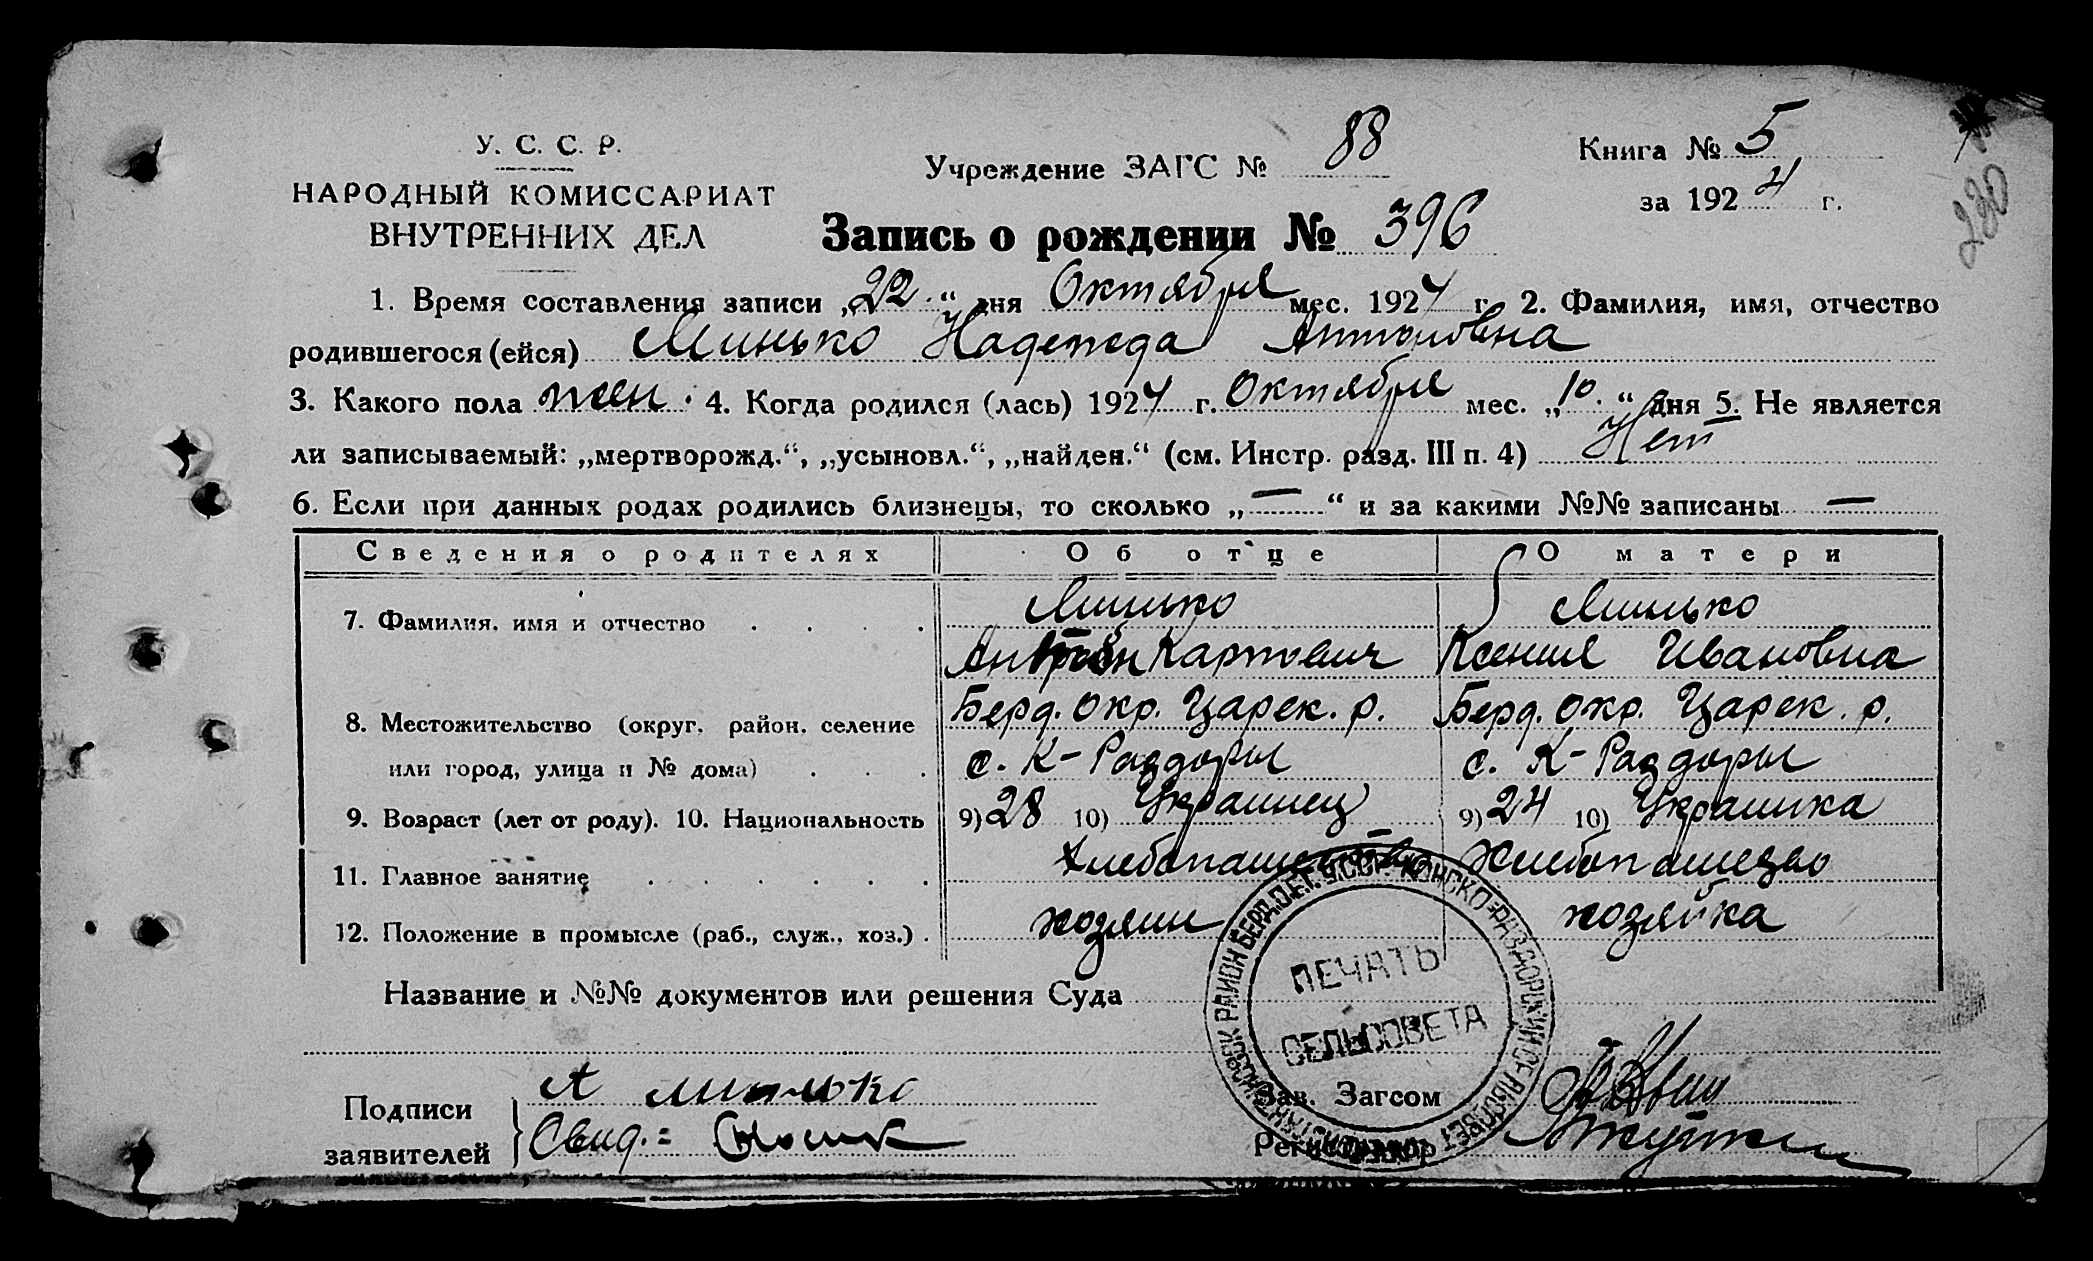 У. С. С. Р.
НАРОДНЫЙ КОМИССАРИАТ
ВНУТРЕННИХ ДЕЛ
Учреждение ЗАГС № 88
Книга № 5
за 1924 г.
230
Запись о рождении № 396
1. Время составления записи „22.“ дня Октября мес. 1924 г. 2. Фамилия, имя, отчество
родившегося (ейся) Минько Надежда Антоновна
3. Какого пола жен. 4. Когда родился (лась) 1924 г. Октября мес. „10.“ дня 5. Не является
ли записываемый: „мертворожд.“, „усыновл.“, „найден.“ (см. Инстр. разд. III п. 4) Нет
6. Если при данных родах родились близнецы, то сколько „—“ и за какими №№ записаны —
Сведения о родителях Об отце О матери
7. Фамилия, имя и отчество Минько Минько
Антон Карпович Ксения Ивановна
8. Местожительство (округ, район, селение Берд. окр. Царек. р. Берд. окр. Царек. р.
или город, улица и № дома) с. К-Раздоры с. К-Раздоры
9. Возраст (лет от роду). 10. Национальность 9) 28 10) Украинец 9) 24 10) Украинка
11. Главное занятие Хлебопашество Хлебопашество
12. Положение в промысле (раб., служ., хоз.) хозяин хозяйка
Название и №№ документов или решения Суда
ПЕЧАТЬ
СЕЛЬСОВЕТА
Подписи
заявителей
А Минько
Свид.=
Зав. Загсом
Регистратор